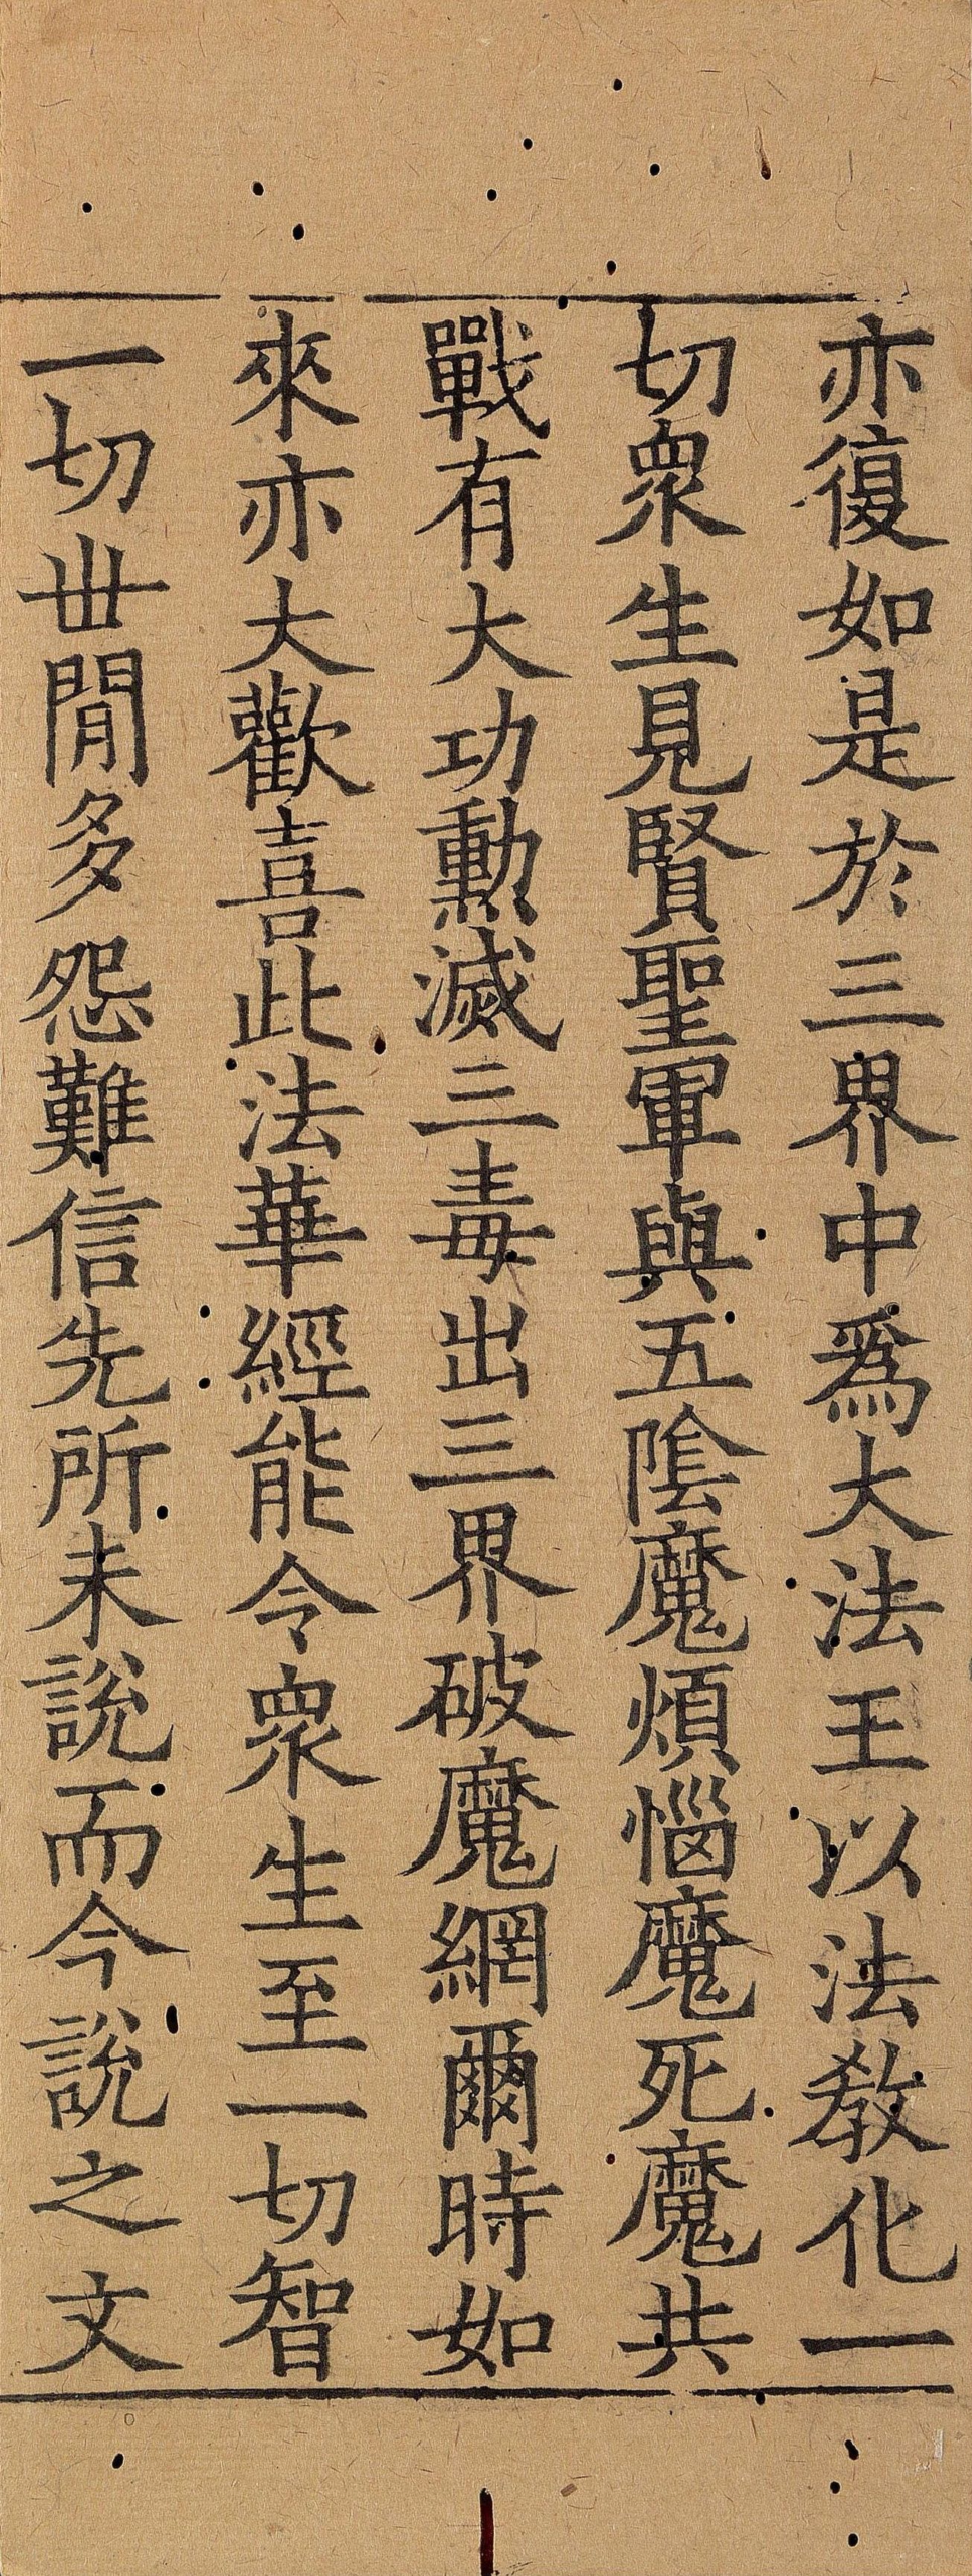 亦復如是於三界中爲大法王以法教化一
切衆生見賢聖軍與五陰魔煩惱魔死魔共
戰有大功勳滅三毒出三界破魔網爾時如
來亦大歡喜此法華經能令衆生至一切智
一切世閒多怨難信先所未說而今說之文